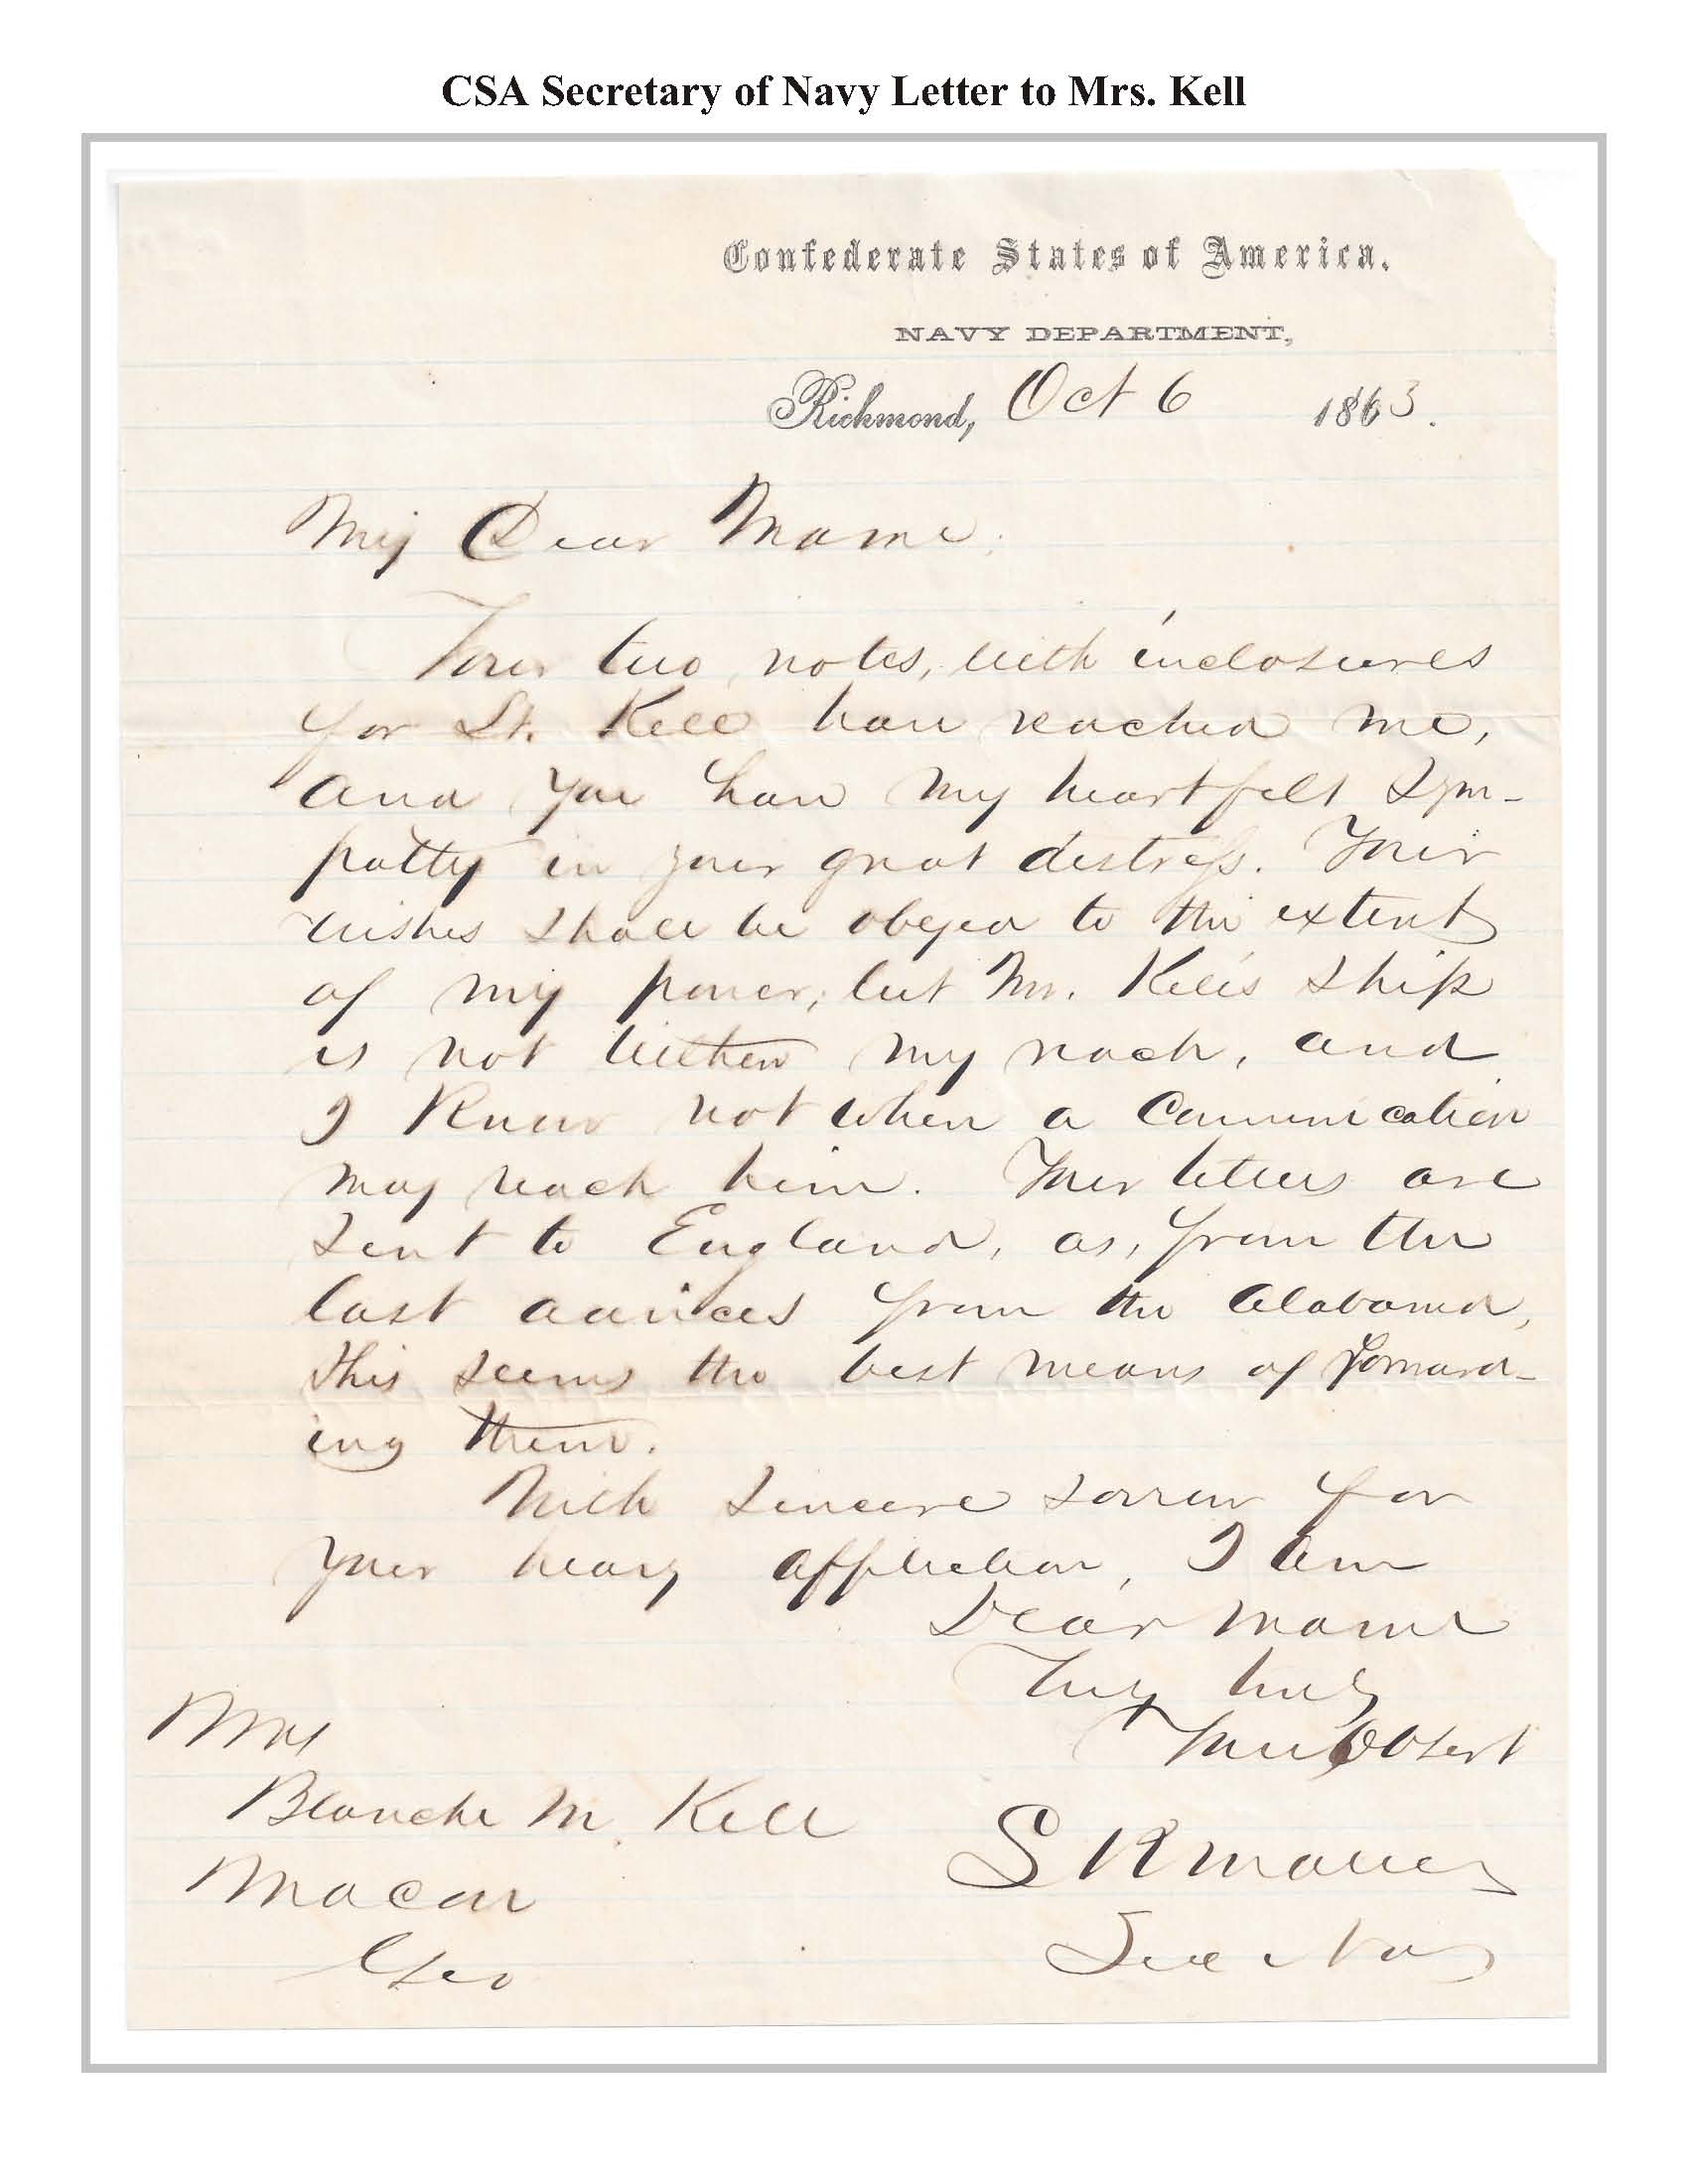 CSA Secretary of Navy Letter to Mrs. Kell
Confederate States of America.
NAVY DEPARTMENT,
Richmond, Oct 6 1863.
My Dear Mame.
Your two notes, with inclosures
for Lt. Kell have reached me,
and you have my heartfelt sym-
pathy in your great distress. Your
wishes shall be obeyed to the extent
of my power; but Mr. Kell's ship
is not within my reach, and
I know not when a communication
may reach him. Your letters are
sent to England, as, from the
last advices from the Alabama,
this seems the best means of forward-
ing them.
With sincere sorrow for
your heavy affliction, I am
Dear Mame
Very truly
Your Obt Servt
S R Mallory
Sec Navy
Mrs
Blanche M. Kell
Macon
Geo